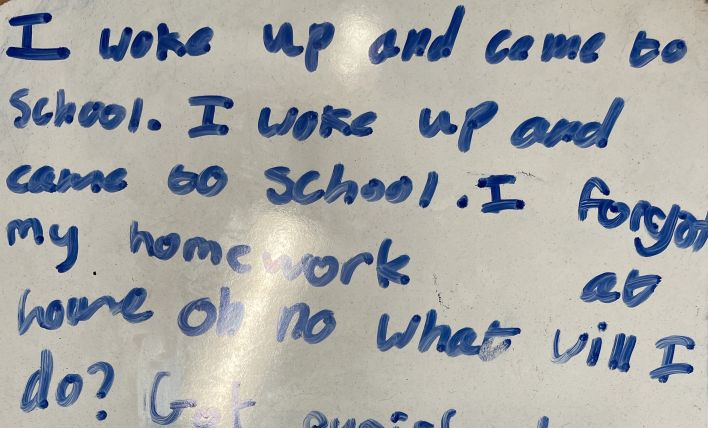 I woke up and came to
School. I woke up and
came to school. I forgot
my homework at
home oh no what vill I
do? Get